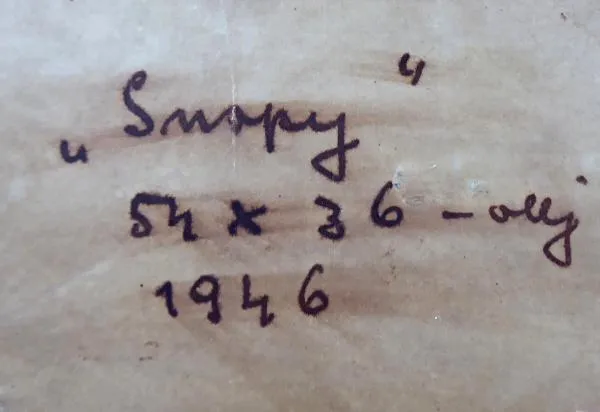 „Snopy“
54 x 36 - olej
1946